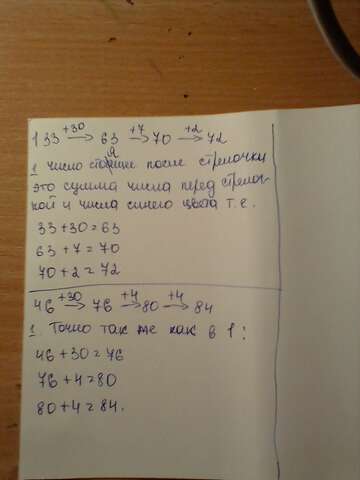 1 33 +30→ 63 +7→ 70 +2→ 72
1 число стоящее после стрелочки
это сумма числа перед стрелоч-
кой и числа синего цвета т.е.
33+30=63
63+7=70
70+2=72
46 +30→ 76 +4→ 80 +4→ 84
1. Точно так же как в 1:
46+30=76
76+4=80
80+4=84.